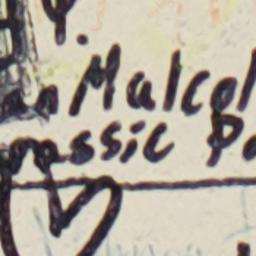 an Malcol
rassic Pa